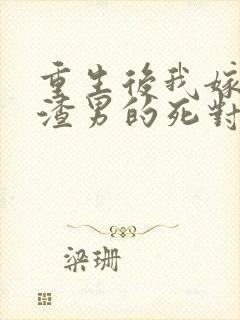 重生後我嫁
渣男的死對
梁珊